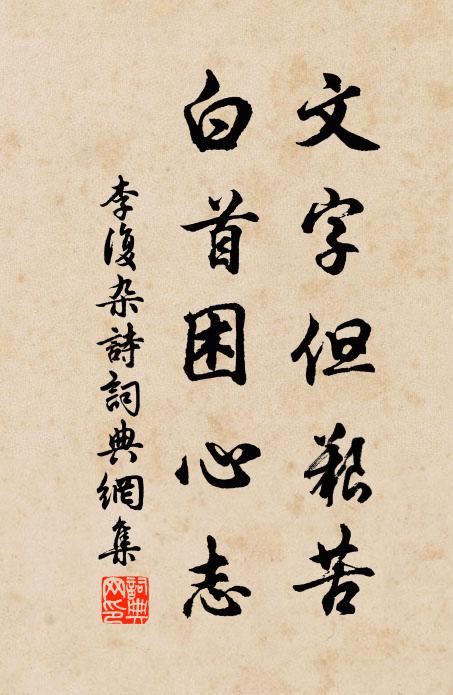 文字但艱苦
白首困心志
李復杂詩詞典網集
詞典
網印